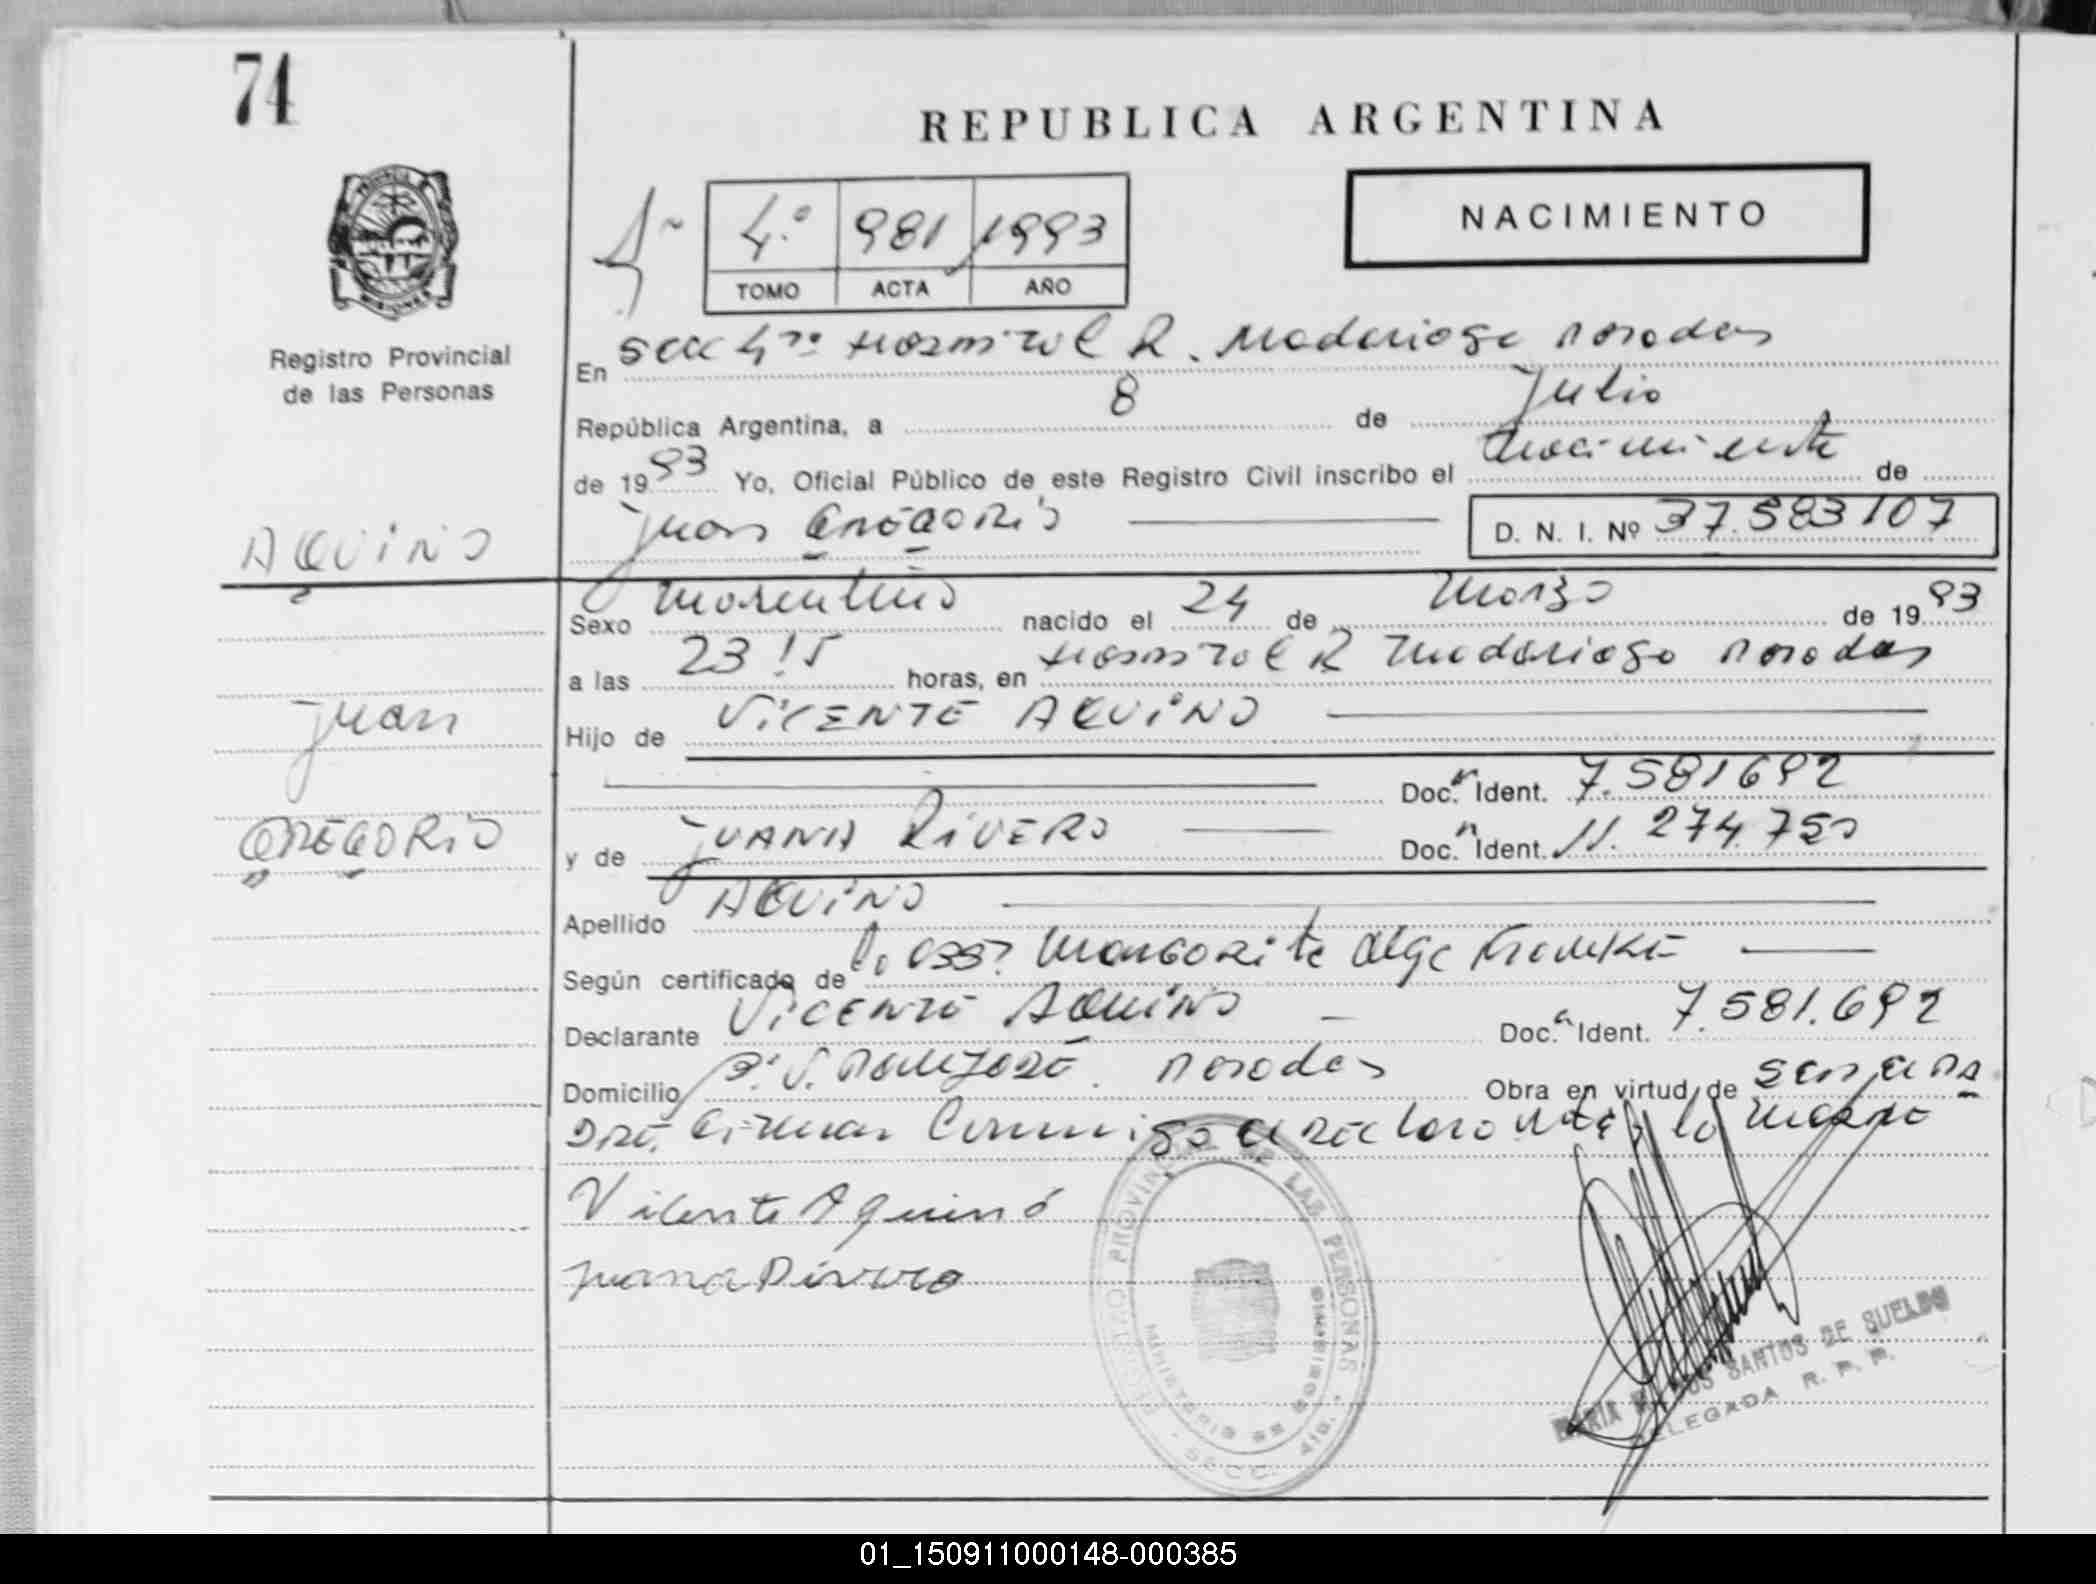 74
REPUBLICA ARGENTINA
NACIMIENTO
4º 981 1993
TOMO ACTA AÑO
Registro Provincial
de las Personas
En Secc 4ta Hospital R. Madariaga Posadas
República Argentina, a 8 de Julio
de 1993 Yo, Oficial Público de este Registro Civil inscribo el nacimiento de
Juan GREGORIO
D. N. I. Nº 37.583107
AQUINO
Juan
GREGORIO
Sexo Masculino nacido el 24 de Marzo de 1993
a las 23 15 horas, en Hospital R Madariaga Posadas
Hijo de VICENTE AQUINO
Doc. Ident. 7.581692
y de JUANA RIVERO Doc. Ident. 11.274.750
Apellido AQUINO
Según certificado de Margarita Olga
Declarante VICENTE AQUINO Doc. Ident. 7.581.692
Domicilio Posadas Obra en virtud de
firman Conmigo el declarante y la madre
Vicente Aquino
Juana Rivero
REGISTRO PROVINCIAL DE LAS PERSONAS
MARIA SANTOS DE SUELDO
DELEGADA R. P. P.
01_150911000148-000385